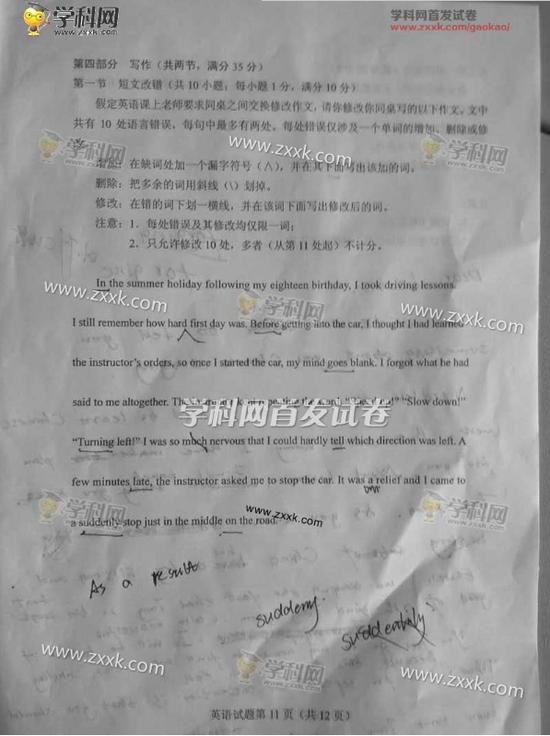 学科网
www.zxxk.com
学科网首发试卷
www.zxxk.com/gaokao/
第四部分 写作（共两节，满分 35 分）
第一节 短文改错（共 10 小题，每小题 1 分，满分 10 分）
假定英语课上老师要求同桌之间交换修改作文，请你修改你同桌写的以下作文。文中
共有 10 处语言错误，每句中最多有两处。每处错误仅涉及一个单词的增加、删除或修
增加：在缺词处加一个漏字符号（∧），并在其下面写出该加的词。
删除：把多余的词用斜线（\）划掉。
修改：在错的词下划一横线，并在该词下面写出修改后的词。
注意：1．每处错误及其修改均仅限一词；
2．只允许修改 10 处，多者（从第 11 处起）不计分。
In the summer holiday following my eighteen birthday, I took driving lessons.
I still remember how hard first day was. Before getting into the car, I thought I had learned
the instructor's orders, so once I started the car, my mind goes blank. I forgot what he had
said to me altogether. The "Slow down!"
学科网首发试卷
"Turning left!" I was so much nervous that I could hardly tell which direction was left. A
few minutes late, the instructor asked me to stop the car. It was a relief and I came to
a suddenly stop just in the middle on the road.
As a result
suddenly
英语试题第 11 页（共 12 页）
学科网
www.zxxk.com
www.zxxk.com
学科网
www.zxxk.com
www.zxxk.com
学科网
www.zxxk.com
学科网
www.zxxk.com
学科网
www.zxxk.com
学科网
www.zxxk.com